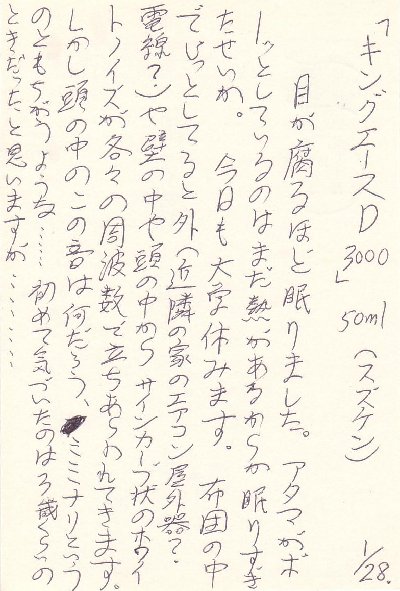 「キングエースD3000」 50ml (スズケン) 1/28.
目が腐るほど眠りました。アタマがボ
ーッとしているのはまだ熱があるからか眠りすぎ
たせいか。 今日も大学休みます。 布団の中
でじっとしてると外(近隣の家のエアコン屋外器?
電線?)や壁の中や頭の中からサインカーブ状のホワイ
トノイズが各々の周波数で立ちあらわれてきます。
しかし頭の中のこの音は何だろう、ミミナリという
のともちがうような……初めて気づいたのは3歳くらいの
ときだったと思いますが………